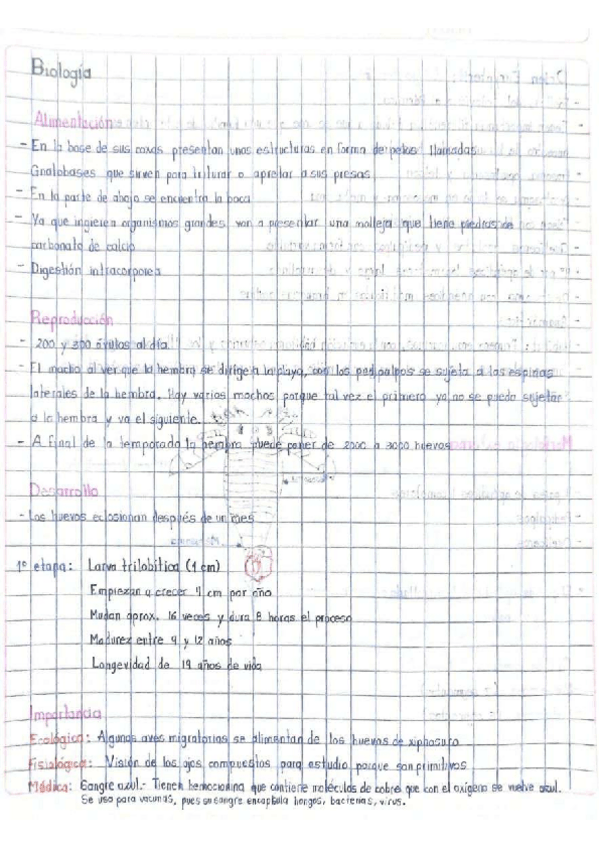 Biología
Alimentación
- En la base de sus coxas presentan unas estructuras en forma de pelos llamadas
Gnatobases que sirven para triturar o apretar a sus presas
- En la parte de abajo se encuentra la boca
- Ya que ingieren organismos grandes van a presentar una molleja que tiene piedras de
carbonato de calcio
- Digestión intracorporea
Reproducción
- 200 y 300 óvulos al día.
- El macho al ver que la hembra se dirige a la playa, con los pedipalpos se sujeta a las espinas
laterales de la hembra. Hay varios machos porque tal vez el primero ya no se puede sujetar
a la hembra y va el siguiente.
- A final de la temporada la hembra puede poner de 2000 a 3000 huevos
Desarrollo
- Los huevos eclosionan después de un mes
1° etapa: Larva trilobítica (1 cm)
Empiezan a crecer 4 cm por año
Mudan aprox. 16 veces y dura 8 horas el proceso
Madurez entre 9 y 12 años
Longevidad de 19 años de vida
Importancia
Ecológica: Algunas aves migratorias se alimentan de los huevos de xiphosura
Fisiológica: Visión de los ojos compuestos para estudio porque son primitivos
Médica: Sangre azul.- Tienen hemocianina que contiene moléculas de cobre que con el oxígeno se vuelve azul.
Se usa para vacunas, pues su sangre encapsula hongos, bacterias, virus.